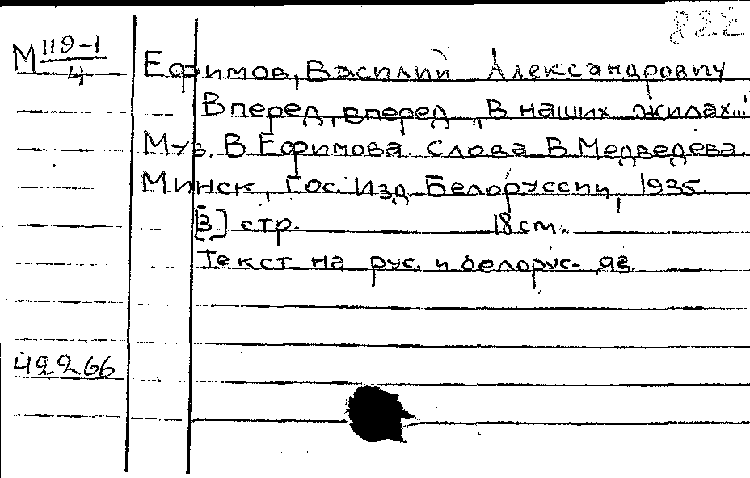 822
М 119-1/4
Ефимов, Василий Александрович
Вперед, вперед, "В наших жилах..."
Муз. В. Ефимова. Слова В. Медведева.
Минск, Гос. Изд. Белоруссии, 1935.
[3] стр. 18 cm.
Текст на рус. и белорус. яз.
42266